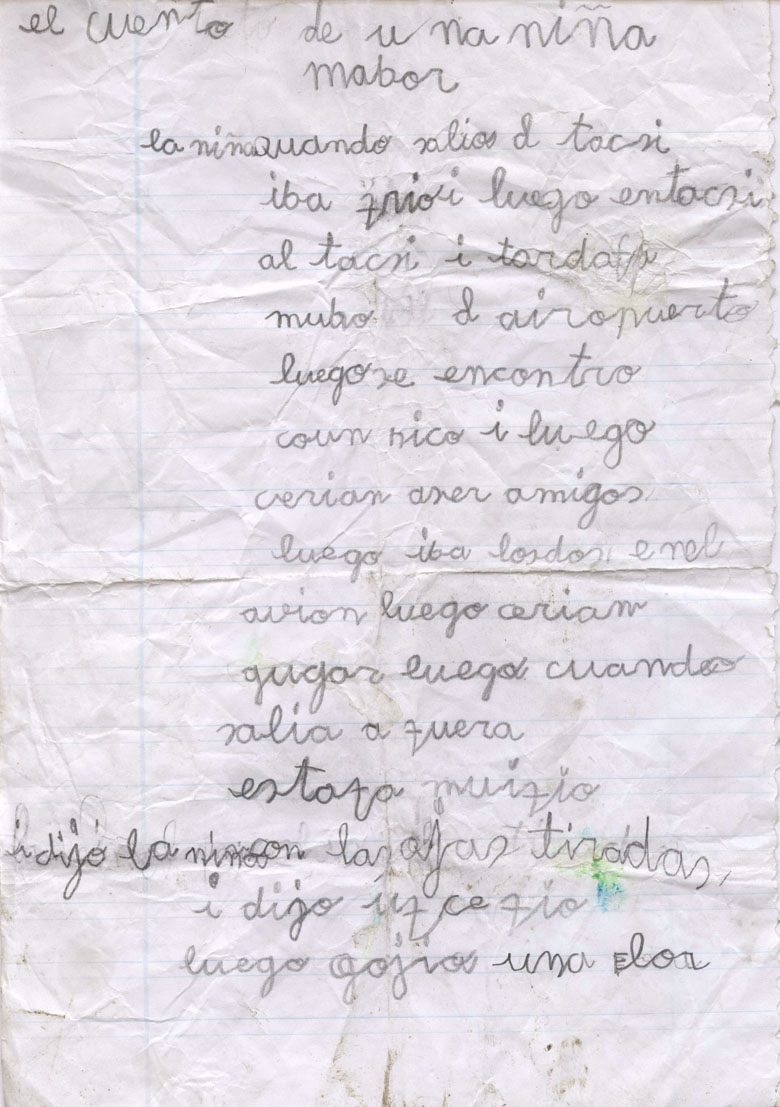 el cuento de u na niña
mabor
la niña quando salios d tacsi
iba frio i luego entacsi
al tacsi i tarda
mubo d airopuerto
luego se encontro
coun sico i luego
cerian aser amigos
luego iba los dos enel
avion luego cerian
gugar luego cuando
salia a fuera
estafa muifio
i dijo la niña con las ojas tiradas,
i dijo uf ce fio
luego gojio una flor